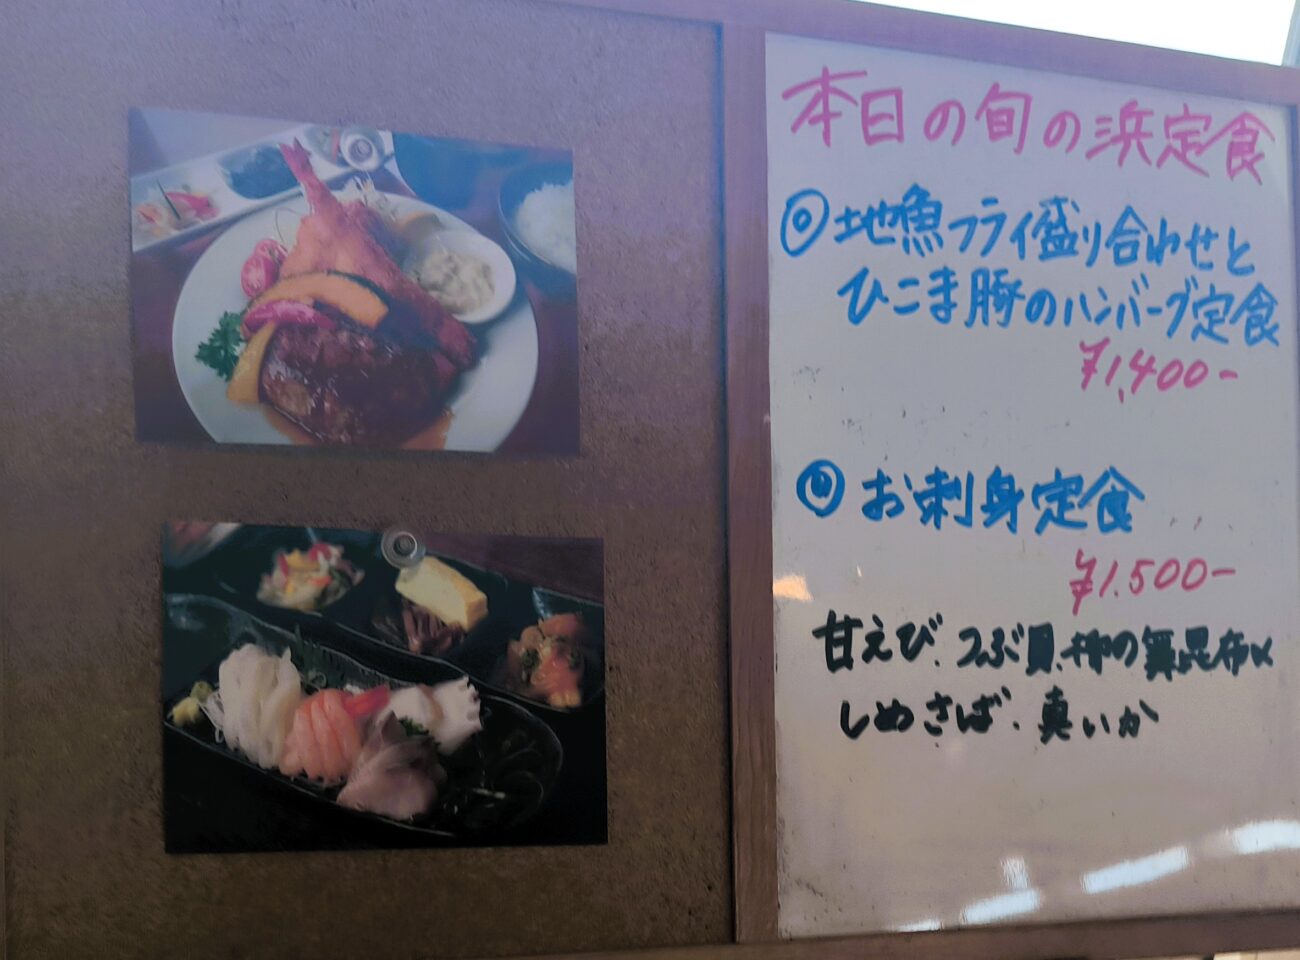 本日の旬の浜定食
地魚フライ盛り合わせと
ひこま豚のハンバーグ定食
¥1,400-
お刺身定食
¥1.500-
甘えび、つぶ貝、昆布〆
しめさば、真いか